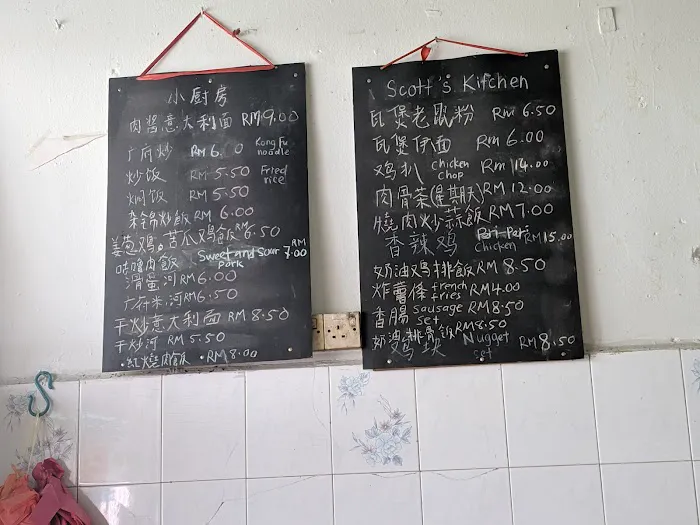 小厨房
肉酱意大利面 RM 9.00
广府炒 RM 6. 0 Kong Fu noodle
炒饭 RM 5.50 Fried rice
焖饭 RM 5.50
杂锦炒飯 RM 6.00
姜葱鸡。苦瓜鸡飯 RM 6.50
咕噜肉飯 Sweet and Sour Pork RM 7.00
滑蛋河 RM 6.00
广府米.河 RM 6.50
干炒意大利面 RM 8.50
干炒河 RM 5.50
红燒肉飯 RM 8.00
Scott's Kitchen
瓦煲老鼠粉 RM 6.50
瓦煲伊面 RM 6.00
鸡扒 chicken chop Rm 14.00
肉骨茶(星期天) RM 12.00
燒肉炒蒜飯 RM 7.00
香辣鸡 Peri-Peri Chicken RM 15.00
奶油鸡排飯 RM 8.50
炸薯條 french fries RM 4.00
香腸 Sausage Set RM 8.50
奶油排骨飯 RM 8.50
鸡块 Nugget set RM 8.50